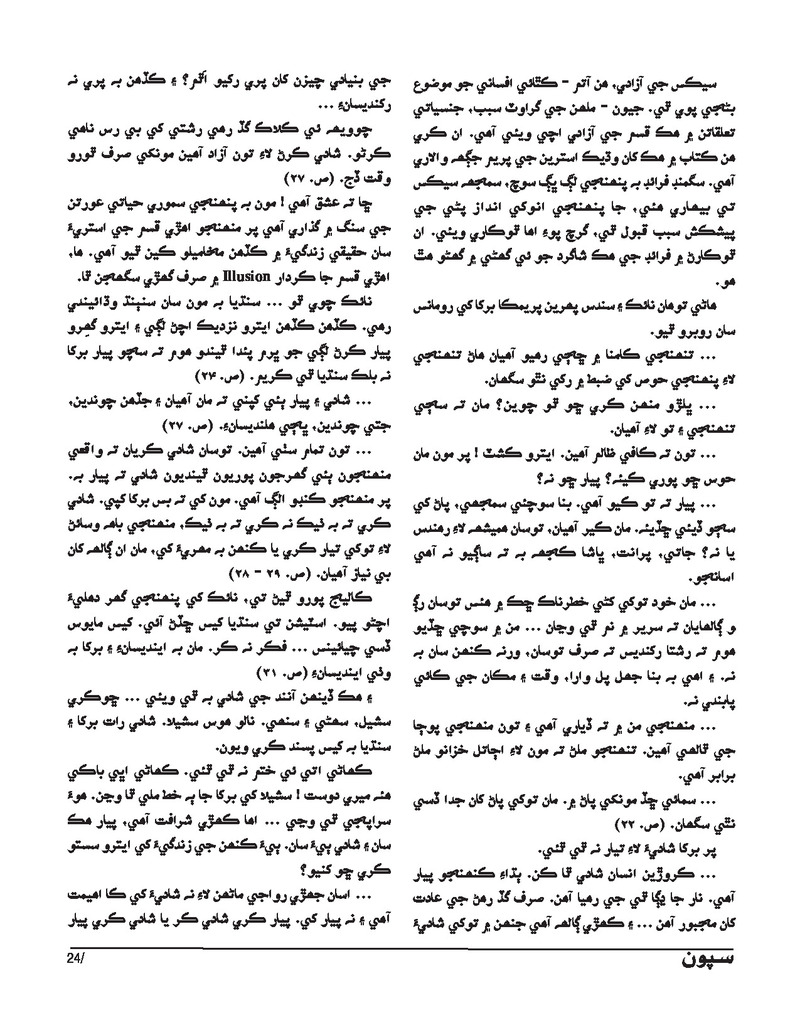 سيڪس جي آزادي، هن آتم - ڪٿائي افساني جو موضوع
بڻجي پوي ٿي. جيون - ملهن جي گراوٽ سبب، جنسياتي
تعلقاتن ۾ هڪ قسم جي آزادي اچي ويئي آهي. ان ڪري
هن ڪتاب ۾ هڪ کان وڌيڪ استرين جي پريم جڳهه والاري
آهي. سگمنڊ فرائڊ به پنهنجي لڳ ڀڳ سوچ، سمجهه سيڪس
تي بيهاري هئي، جا پنهنجي انوکي انداز پڻي جي
پيشڪش سبب قبول ٿي، گرچ پوءِ اها ٿوڪاري ويئي. ان
ٿوڪارڻ ۾ فرائڊ جي هڪ شاگرد جو ئي گهڻي ۾ گهڻو هٿ
هو.
هاڻي توهان نائڪ ۽ سندس پهرين پريمڪا برکا کي رومانس
سان روبرو ٿيو.
... تنهنجي ڪامنا ۾ ڇڄي رهيو آهيان هاڻ تنهنجي
لاءِ پنهنجي حوص کي ضبط ۾ رکي نٿو سگهان.
... پلڙو منهن ڪري ڇو ٿو چوين؟ مان ته سڄي
تنهنجي ۽ تو لاءِ آهيان.
... تون ته ڪافي ظالم آهين. ايترو ڪشٽ! پر مون مان
حوس ڇو پوري ڪيئه؟ پيار ڇو نه؟
... پيار ته تو ڪيو آهي. بنا سوچئي سمجهي، پاڻ کي
سڄو ڏيئي ڇڏيئه. مان ڪير آهيان، توسان هميشه لاءِ رهندس
يا نه؟ جاتي، پرانت، ڀاشا ڪجهه به ته ساڳيو نه آهي
اسانجو.
... مان خود توکي ڪٿي خطرناڪ ڇڪ ۾ هئس توسان رڳ
و ڳالهايان ته سرير ۾ نم ٿي وڃان ... من ۾ سوچي ڇڏيو
هوم ته رشتا رکنديس ته صرف توسان، ورنه ڪنهن سان به
نه. ۽ اهي به بنا جهل پل وارا، وقت ۽ مڪان جي ڪائي
پابندي نه.
... منهنجي من ۾ ته ڏياري آهي ۽ تون منهنجي پوڄا
جي ٿالهي آهين. تنهنجو ملڻ ته مون لاءِ اڄاتل خزانو ملڻ
برابر آهي.
... سمائي ڇڏ مونکي پاڻ ۾. مان توکي پاڻ کان جدا ڏسي
نٿي سگهان. (ص. ۲۲)
پر برکا شاديءَ لاءِ تيار نه ٿي ٿئي.
... ڪروڙين انسان شادي ٿا ڪن. ٻڌاءِ ڪنهنجو پيار
آهي. نار جا ڍڳا ٿي جي رهيا آهن. صرف گڏ رهڻ جي عادت
کان مجبور آهن ... ۽ ڪهڙي ڳالهه آهي جنهن ۾ توکي شاديءَ
جي بنيادي چيزن کان پري رکيو اٿم؟ ۽ ڪڏهن به پري نه
رکنديسانءِ ...
چوويهه ئي ڪلاڪ گڏ رهي رشتي کي بي رس ناهي
ڪرڻو. شادي ڪرڻ لاءِ تون آزاد آهين مونکي صرف ٿورو
وقت ڏج. (ص. ۲۷)
ڇا ته عشق آهي! مون به پنهنجي سموري حياتي عورتن
جي سنگ ۾ گذاري آهي پر منهنجو اهڙي قسم جي استريءَ
سان حقيقي زندگيءَ ۾ ڪڏهن مخاميلو ڪين ٿيو آهي. ها،
اهڙي قسم جا ڪردار Illusion ۾ صرف گهڙي سگهجن ٿا.
نائڪ چوي ٿو ... سنڌيا به مون سان سنٻنڌ وڌائيندي
رهي. ڪڏهن ڪڏهن ايترو نزديڪ اچڻ لڳي ۽ ايترو گهرو
پيار ڪرڻ لڳي جو ڀرم پئدا ٿيندو هوم ته سچو پيار برکا
نه بلڪ سنڌيا ٿي ڪريم. (ص. ۲۴)
... شادي ۽ پيار ٻئي کپني ته مان آهيان ۽ جڏهن چوندين،
جتي چوندين، ڀڄي هلنديسانءِ. (ص. ۲۷)
... تون تمام سٺي آهين. توسان شادي ڪريان ته واقعي
منهنجون ٻئي گهرجون پوريون ٿينديون شادي ته پيار به.
پر منهنجو ڪنبو الڳ آهي. مون کي ته بس برکا کپي. شادي
ڪري ته به ٺيڪ نه ڪري ته به ٺيڪ، منهنجي باهه وسائڻ
لاءِ توکي تيار ڪري يا ڪنهن به مهريءَ کي، مان ان ڳالهه کان
بي نياز آهيان. (ص. ۲۹ - ۲۸)
ڪاليج پورو ٿيڻ تي، نائڪ کي پنهنجي گهر دهليءَ
اچڻو پيو. اسٽيشن تي سنڌيا کيس ڇڏڻ آئي. کيس مايوس
ڏسي چيائينس ... فڪر نه ڪر. مان به اينديسانءِ ۽ برکا به
وٺي اينديسانءِ (ص. ۳۱)
۽ هڪ ڏينهن آنند جي شادي به ٿي ويئي ... ڇوڪري
سشيل، سهڻي ۽ سنهي. نالو هوس سشيلا. شادي رات برکا ۽
سنڌيا به کيس پسند ڪري ويون.
ڪهاڻي اتي ئي ختم نه ٿي ٿئي. ڪهاڻي اڀي باڪي
هئه ميري دوست! سشيلا کي برکا جا ٻه خط ملي ٿا وڃن. هوءَ
سراپجي ٿي وڃي ... اها ڪهڙي شرافت آهي، پيار هڪ
سان ۽ شادي ٻيءَ سان. ٻيءَ ڪنهن جي زندگيءَ کي ايترو سستو
ڪري ڇو کنيو؟
... اسان جهڙي رواجي ماڻهن لاءِ نه شاديءَ کي ڪا اهيمت
آهي ۽ نه پيار کي. پيار ڪري شادي ڪر يا شادي ڪري پيار
24/
سپون